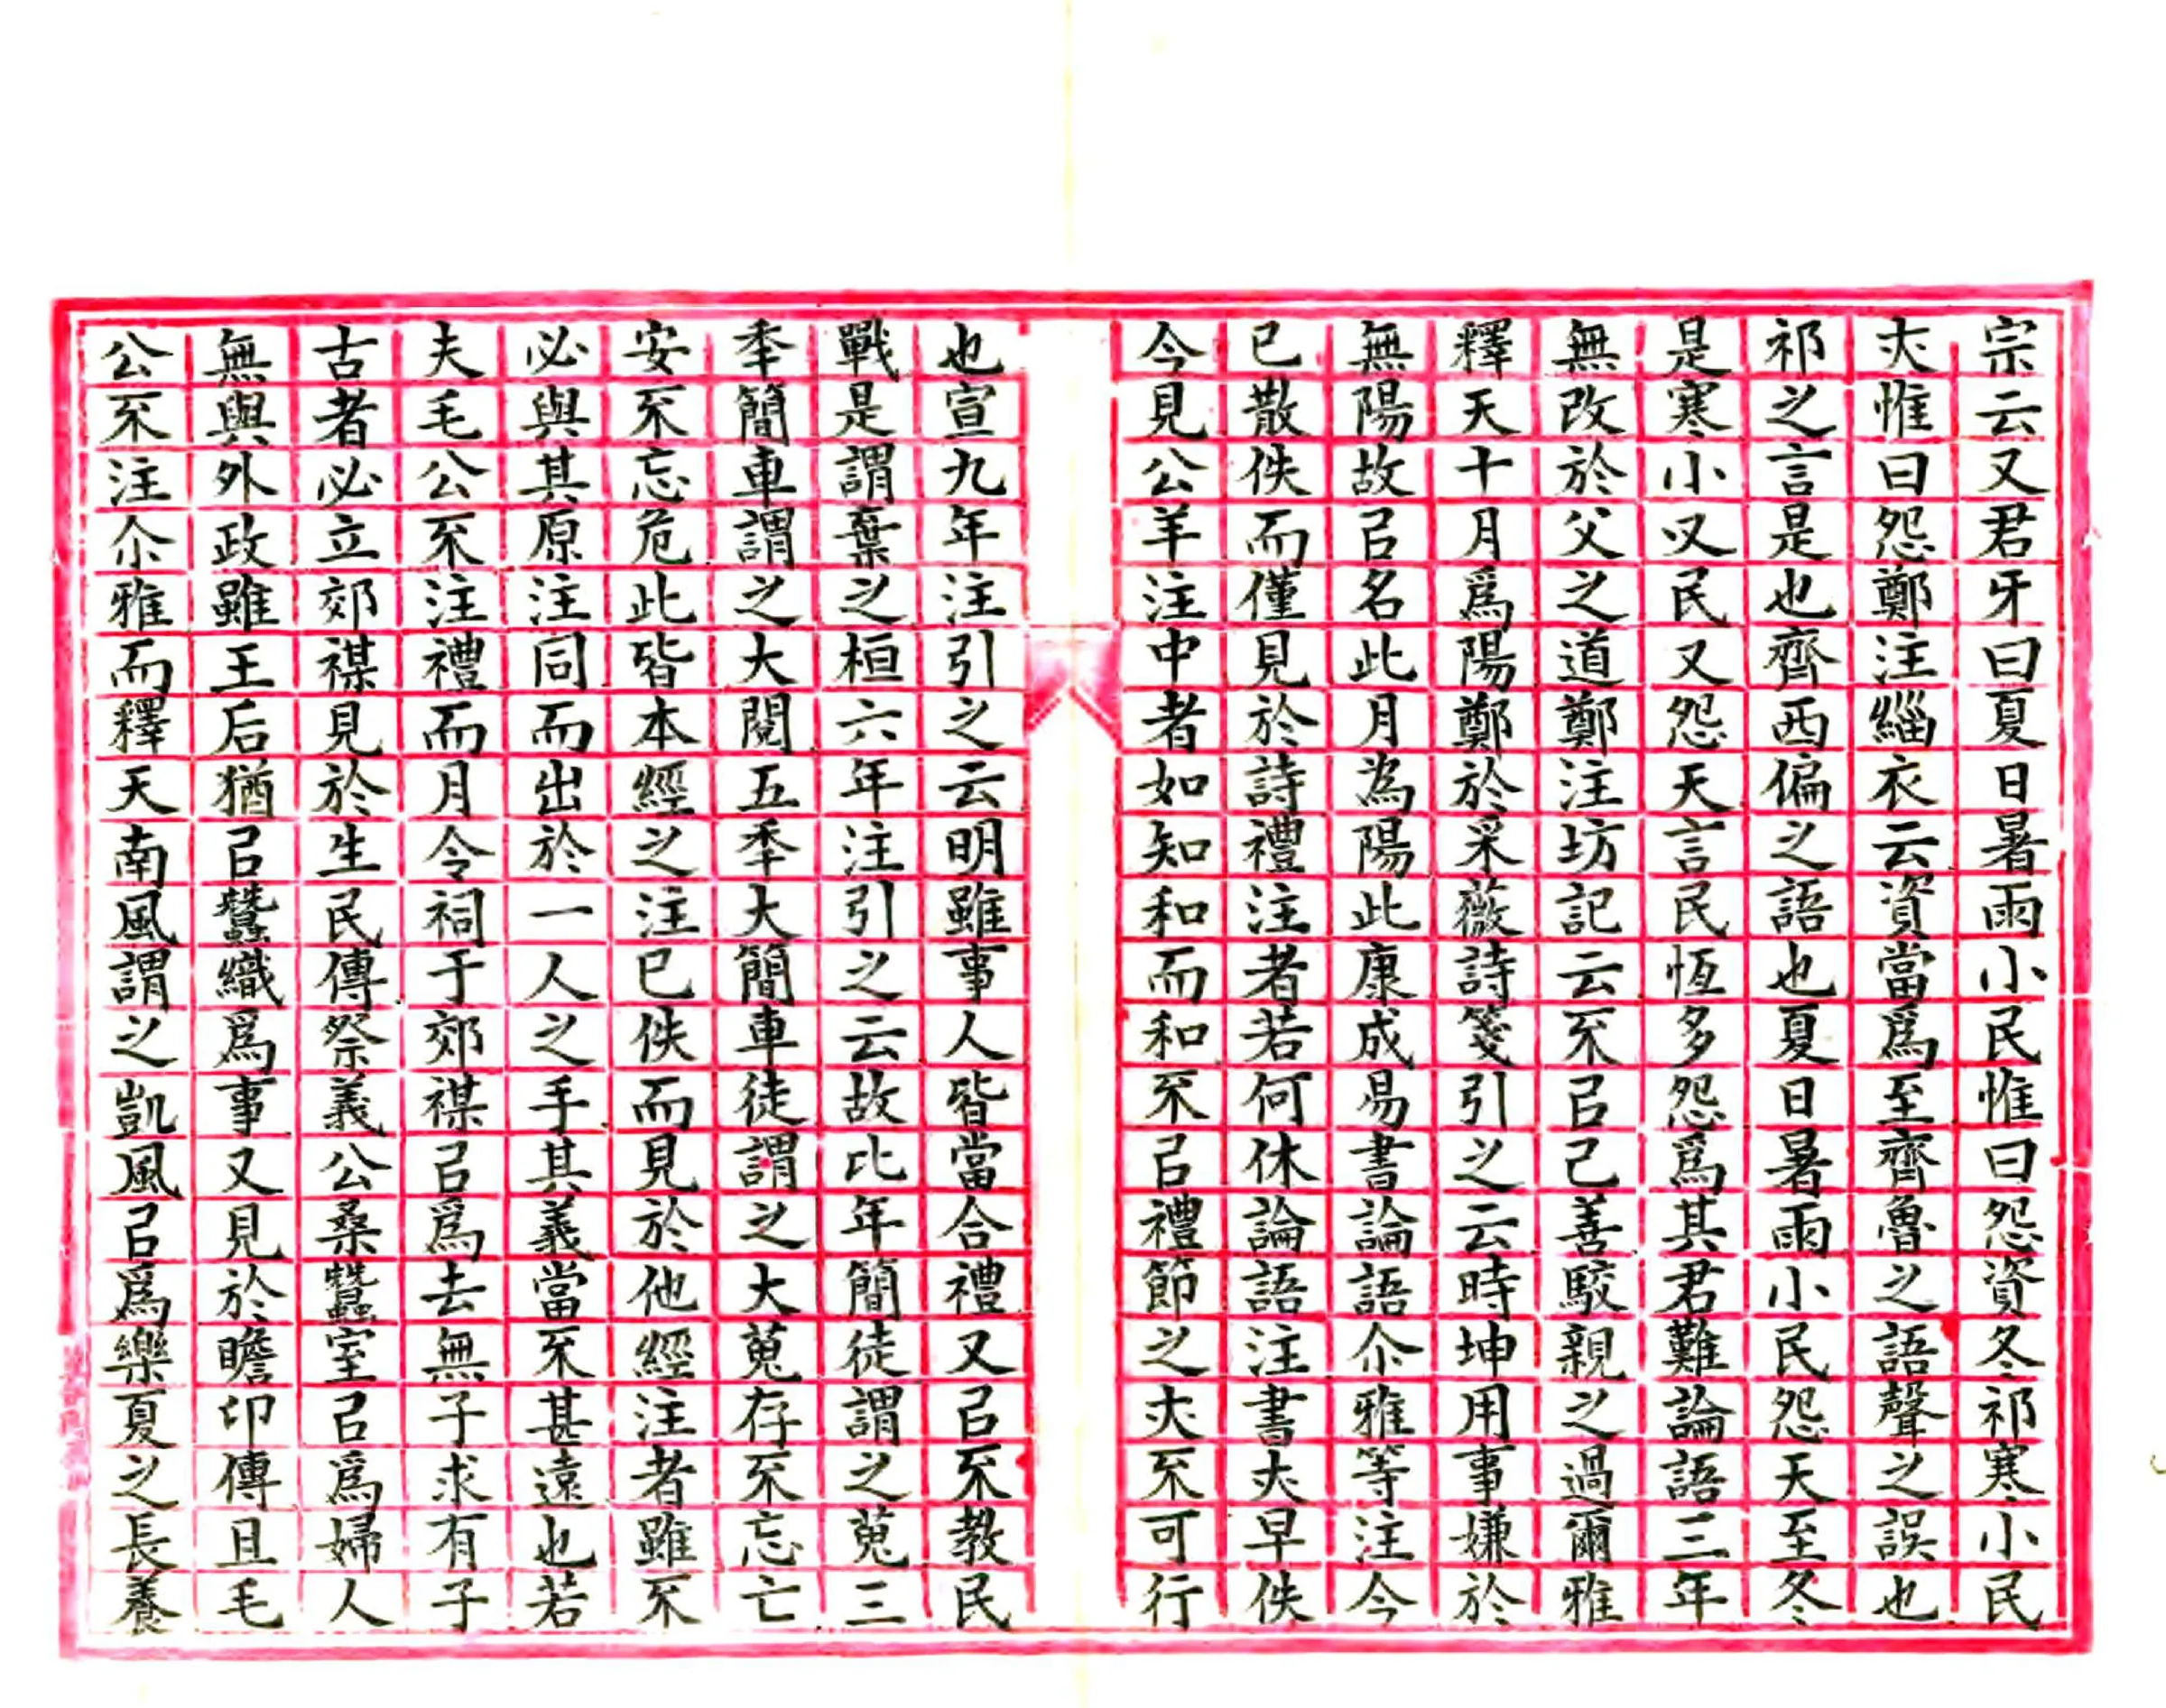 宗云又君牙曰夏日暑雨小民惟曰怨資冬祁寒小民
亦惟曰怨鄭注緇衣云資當爲至齊魯之語聲之誤也
祁之言是也齊西偏之語也夏日暑雨小民怨天至冬
是寒小又民又怨天言民恆多怨爲其君難論語三年
無改於父之道鄭注坊記云不㠯己善駮親之過爾雅
釋天十月爲陽鄭於采薇詩箋引之云時坤用事嫌於
無陽故㠯名此月為陽此康成易書論語尒雅等注今
已散佚而僅見於詩禮注者若何休論語注書亦早佚
今見公羊注中者如知和而和不㠯禮節之亦不可行
也宣九年注引之云明雖事人皆當合禮又㠯不教民
戰是謂棄之桓六年注引之云故比年簡徒謂之蒐三
秊簡車謂之大閱五秊大簡車徒謂之大蒐存不忘亡
安不忘危此皆本經之注已佚而見於他經注者雖不
必與其原注同而出於一人之手其義當不甚遠也若
夫毛公不注禮而月令祠于郊禖㠯爲去無子求有子
古者必立郊禖見於生民傳祭義公桑蠶室㠯爲婦人
無與外政雖王后猶㠯蠶織爲事又見於瞻卬傳且毛
公不注尒雅而釋天南風謂之凱風㠯爲樂夏之長養